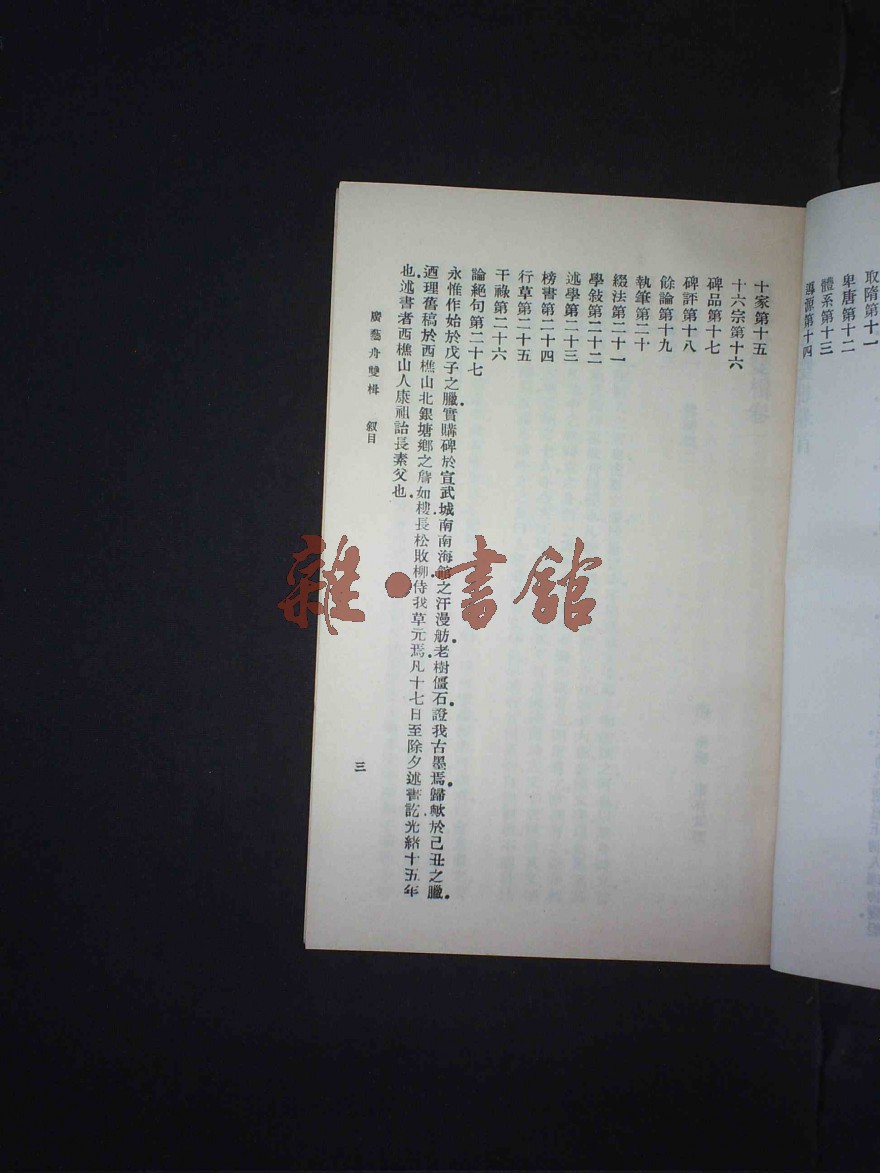 取隋第十一
卑唐第十二
體系第十三
導源第十四
十家第十五
十六宗第十六
碑品第十七
碑評第十八
餘論第十九
執筆第二十
綴法第二十一
學敍第二十二
述學第二十三
榜書第二十四
行草第二十五
干祿第二十六
論絕句第二十七
永惟作始於戊子之臘。實購碑於宣武城南南海館之汗漫舫。老樹僵石。證我古墨焉。歸歟於己丑之臘。
迺理舊稿於西樵山北銀塘鄉之澹如樓。長松敗柳。侍我草元焉。凡十七日至除夕述書訖。光緒十五年
也。述書者西樵山人康祖詒長素父也。
廣藝舟雙楫 叙目 三
雜·書館